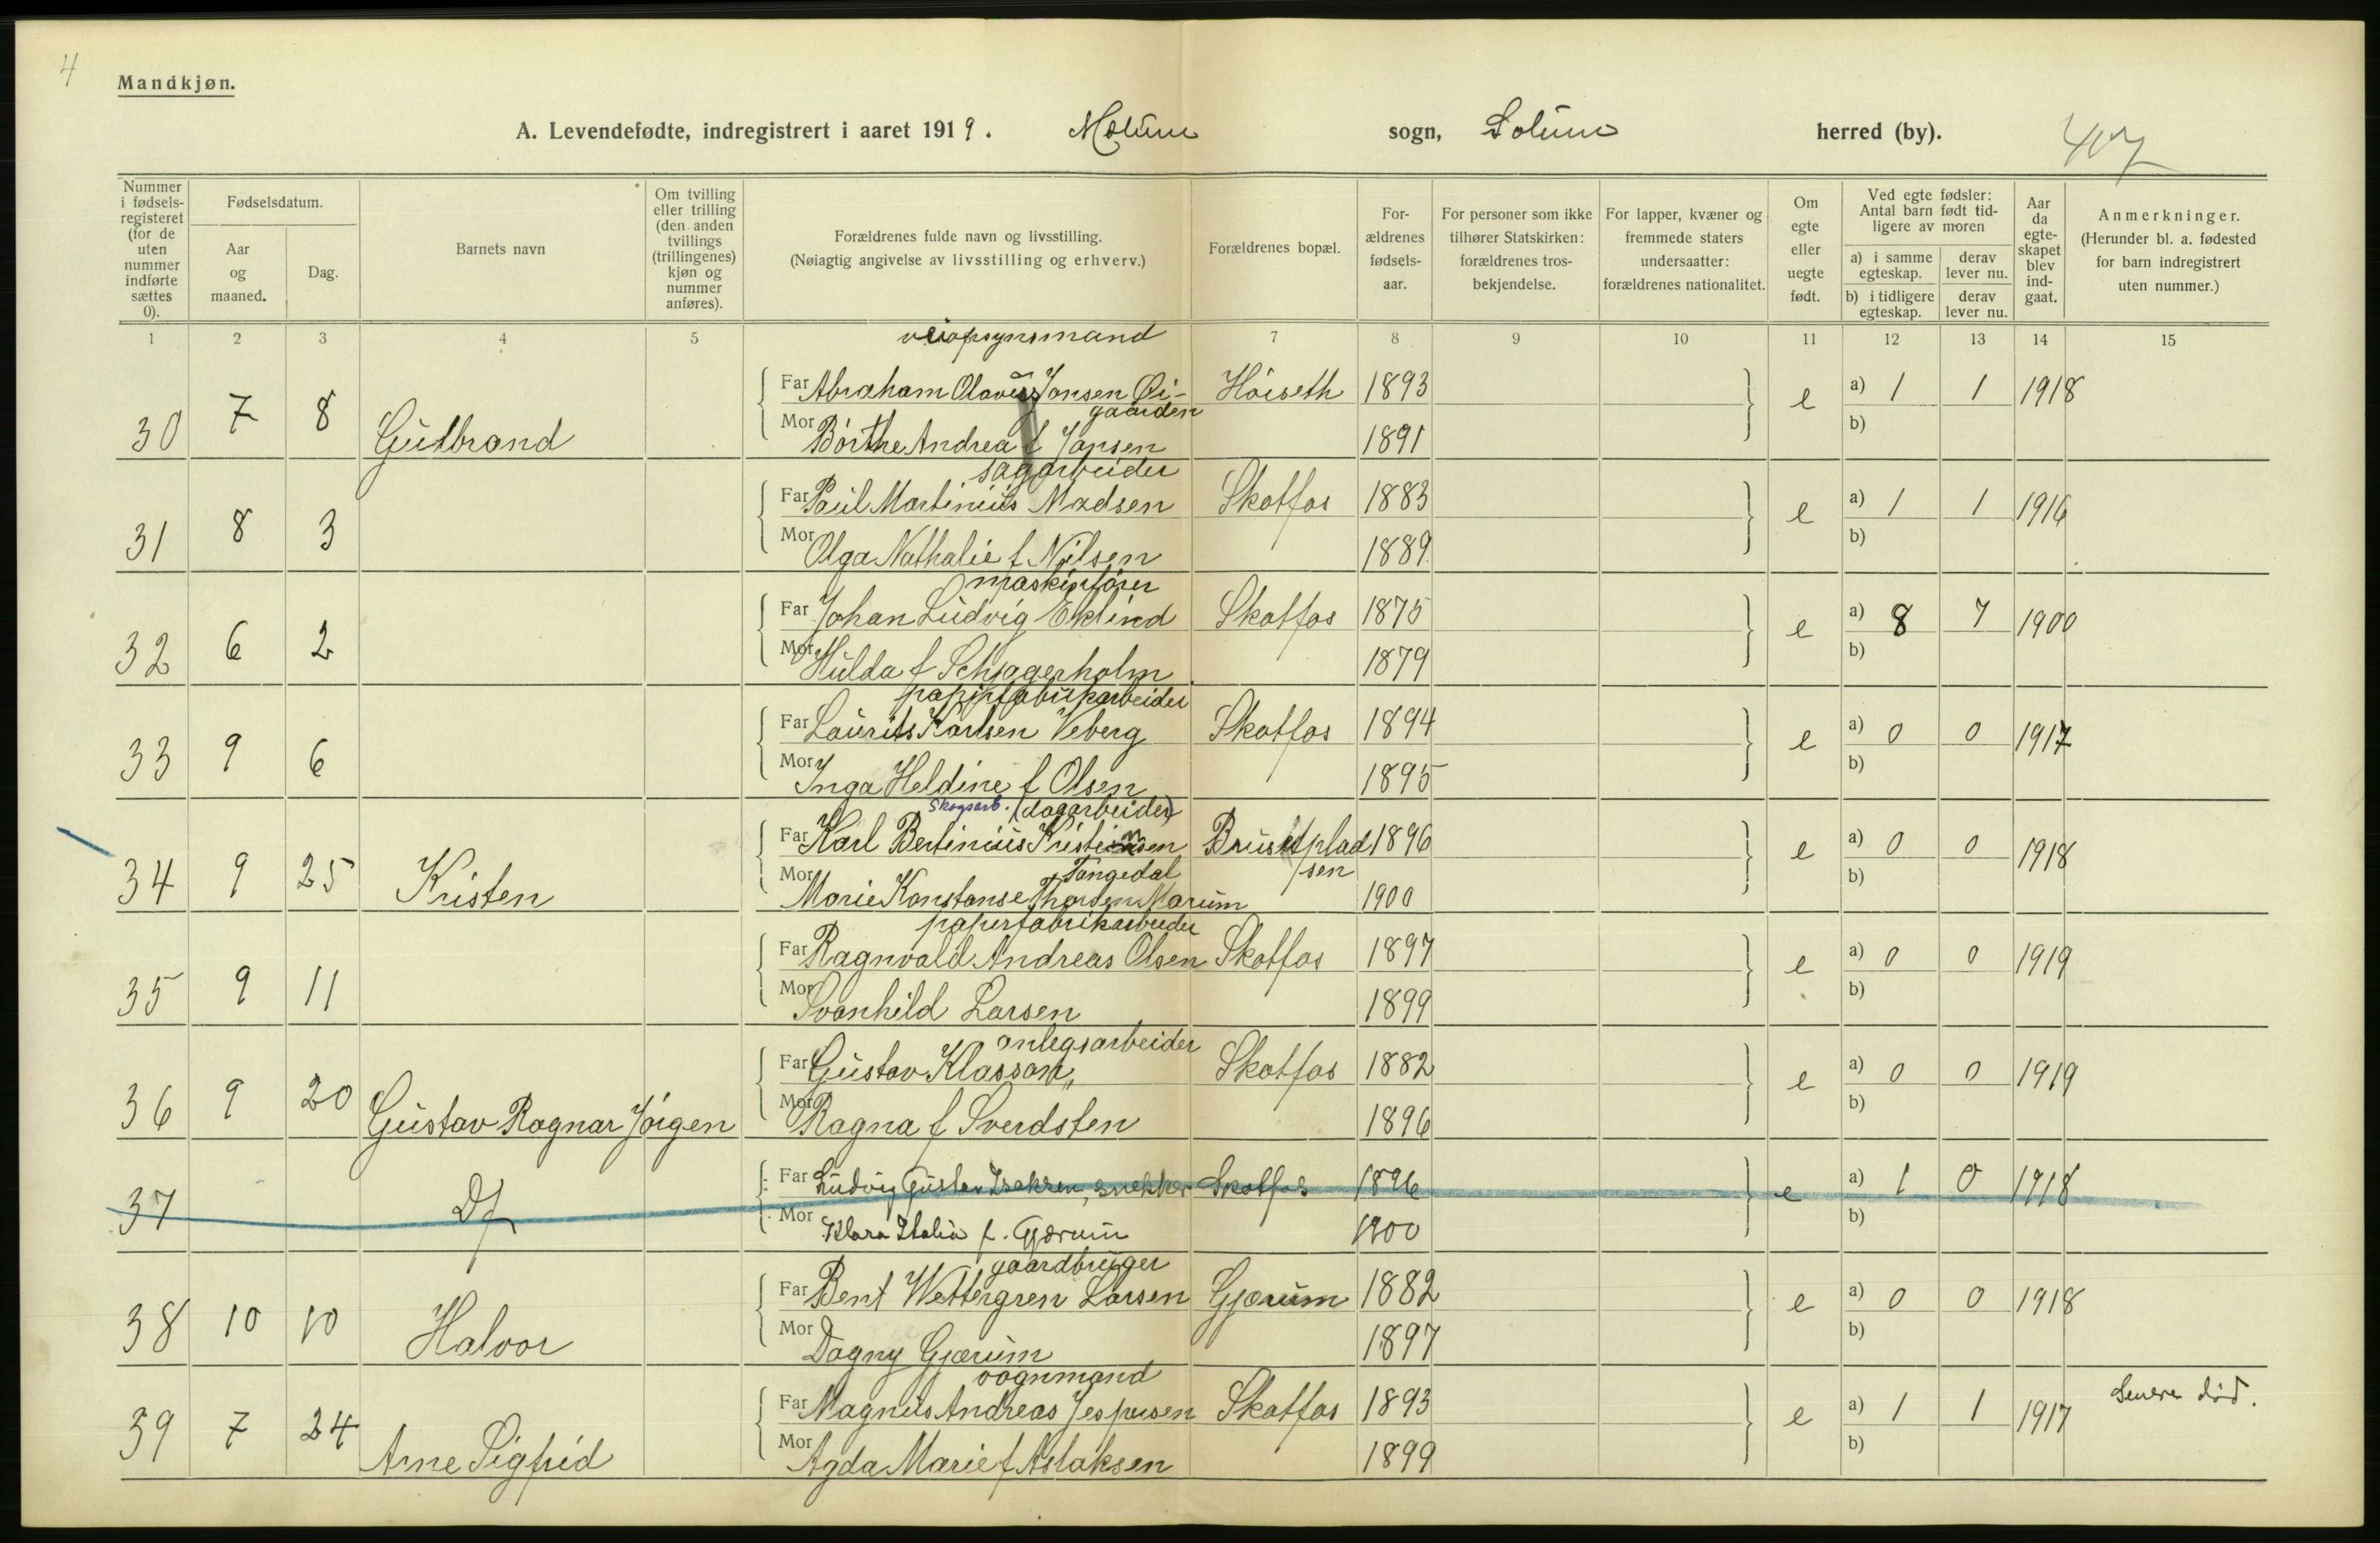 4
Mandkjøn.
A. Levendefødte, indregistrert i aaret 1919. Melum sogn, Solum herred (by).
407
Nummer i fødselsregisteret (for de uten nummer indførte sættes 0).
Fødselsdatum.
Aar og maaned.
Dag.
Barnets navn
Om tvilling eller trilling (den anden tvillings (trillingenes) kjøn og nummer anføres).
Forældrenes fulde navn og livsstilling.
(Nøiagtig angivelse av livsstilling og erhverv.)
Forældrenes bopæl.
Forældrenes fødselsaar.
For personer som ikke tilhører Statskirken: forældrenes trosbekjendelse.
For lapper, kvæner og fremmede staters undersaatter: forældrenes nationalitet.
Om egte eller uegte født.
Ved egte fødsler: Antal barn født tidligere av moren
a) i samme egteskap.
derav lever nu.
b) i tidligere egteskap.
derav lever nu.
Aar da egteskapet blev indgaat.
Anmerkninger.
(Herunder bl. a. fødested for barn indregistrert uten nummer.)
1 2 3 4 5 7 8 9 10 11 12 13 14 15
veiopsynsmand
Far Abraham Olavus Jansen Øigaarden Höiseth 1893 e a) 1 1 1918
30 7 8 Gutbrand
Mor Börthe Andrea f Jansen 1891 b)
sagarbeider
Far Paul Martinius Madsen Skotfos 1883 e a) 1 1 1916
31 8 3
Mor Olga Nathalie f Nilsen 1889 b)
maskinfører
Far Johan Ludvig Eklind Skotfos 1875 e a) 8 7 1900
32 6 2
Mor Hulda f Schjagerholm 1879 b)
papirfabrikarbeider
Far Laurits Karlsen Veberg Skotfos 1894 e a) 0 0 1917
33 9 6
Mor Inga Heldine f Olsen 1895 b)
Skogsarb. (dagarbeider)
Far Karl Bertinius Kristensen Tangedal Brusetpladsen 1896 e a) 0 0 1918
34 9 25 Kristen
Mor Marie Konstanse Thorsen Marum 1900 b)
papirfabrikarbeider
Far Ragnvald Andreas Olsen Skotfos 1897 e a) 0 0 1919
35 9 11
Mor Svanhild Larsen 1899 b)
anlegsarbeider
Far Gustav Klasson Skotfos 1882 e a) 0 0 1919
36 9 20 Gustav Ragnar Jörgen
Mor Ragna f Sverdsten 1896 b)
Far Ludvig Gustav Isaksen, snekker Skotfos 1896 e a) 1 0 1918
37 Df
Mor Klara Italia f. Gjærum 1900 b)
gaardbruger
Far Bent Wettergren Larsen Gjærum 1882 e a) 0 0 1918
38 10 10 Halvor
Mor Dagny Gjærum 1897 b)
vognmand
Far Magnus Andreas Jespersen Skotfos 1893 e a) 1 1 1917 Senere död.
39 7 24 Arne Sigfrid
Mor Agda Marie f Aslaksen 1899 b)